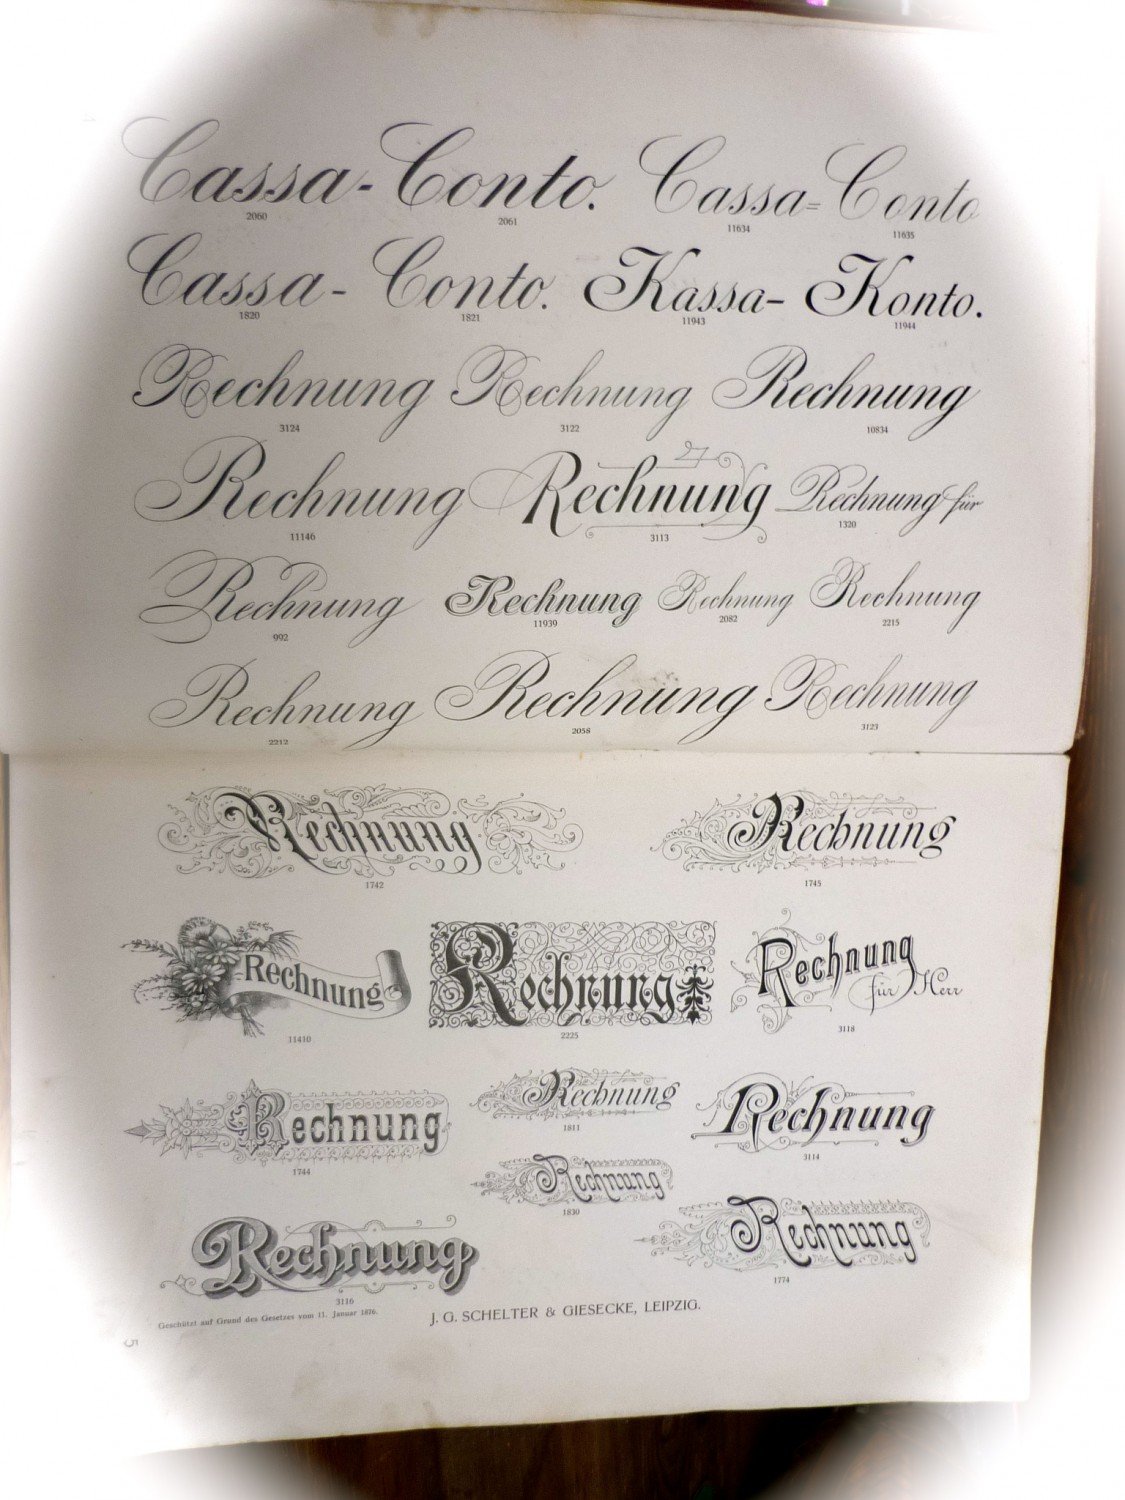 Cassa-Conto. Cassa=Conto
2060 2061 11634 11635
Cassa-Conto. Kassa-Konto.
1820 1821 11943 11944
Rechnung Rechnung Rechnung
3124 3122 10834
Rechnung Rechnung Rechnung für
11146 3113 1320
Rechnung Rechnung Rechnung Rechnung
992 11939 2082 2215
Rechnung Rechnung Rechnung
2212 2058 3123
Rechnung Rechnung
1742 1745
Rechnung Rechnung Rechnung
für Herr
11410 2225 3118
Rechnung Rechnung Rechnung
1744 1811 3114
Rechnung
1830
Rechnung Rechnung
3116 1774
Geschützt auf Grund des Gesetzes vom 11. Januar 1876.
J. G. SCHELTER & GIESECKE, LEIPZIG.
5